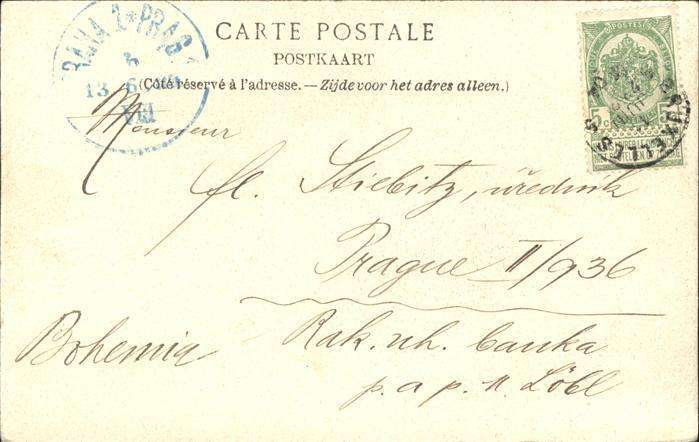 CARTE POSTALE
POSTKAART
(Côté réservé à l'adresse. — Zijde voor het adres alleen.)
PRAHA 1 * PRAG
13
VIII
POSTES
5c
BRUXELLES
Monsieur
fl. Stiebitz, úředník
Prague II/936
Bohemia
Rak. uh. banka
p. a p. M. Löbl